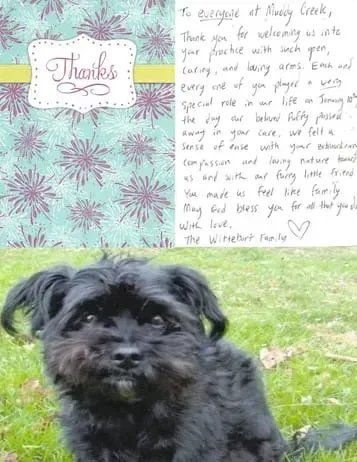 Thanks
To everyone at Muddy Creek,
Thank you for welcoming us into
your practice with such open,
caring, and loving arms. Each and
every one of you played a very
special role in our life on January 10th
the day our beloved Puffy passed
away in your care, we felt a
sense of ease with your extraordinary
compassion and loving nature toward
us and with our furry little friend
You made us feel like family
May God bless you for all that you do
With love,
The Family